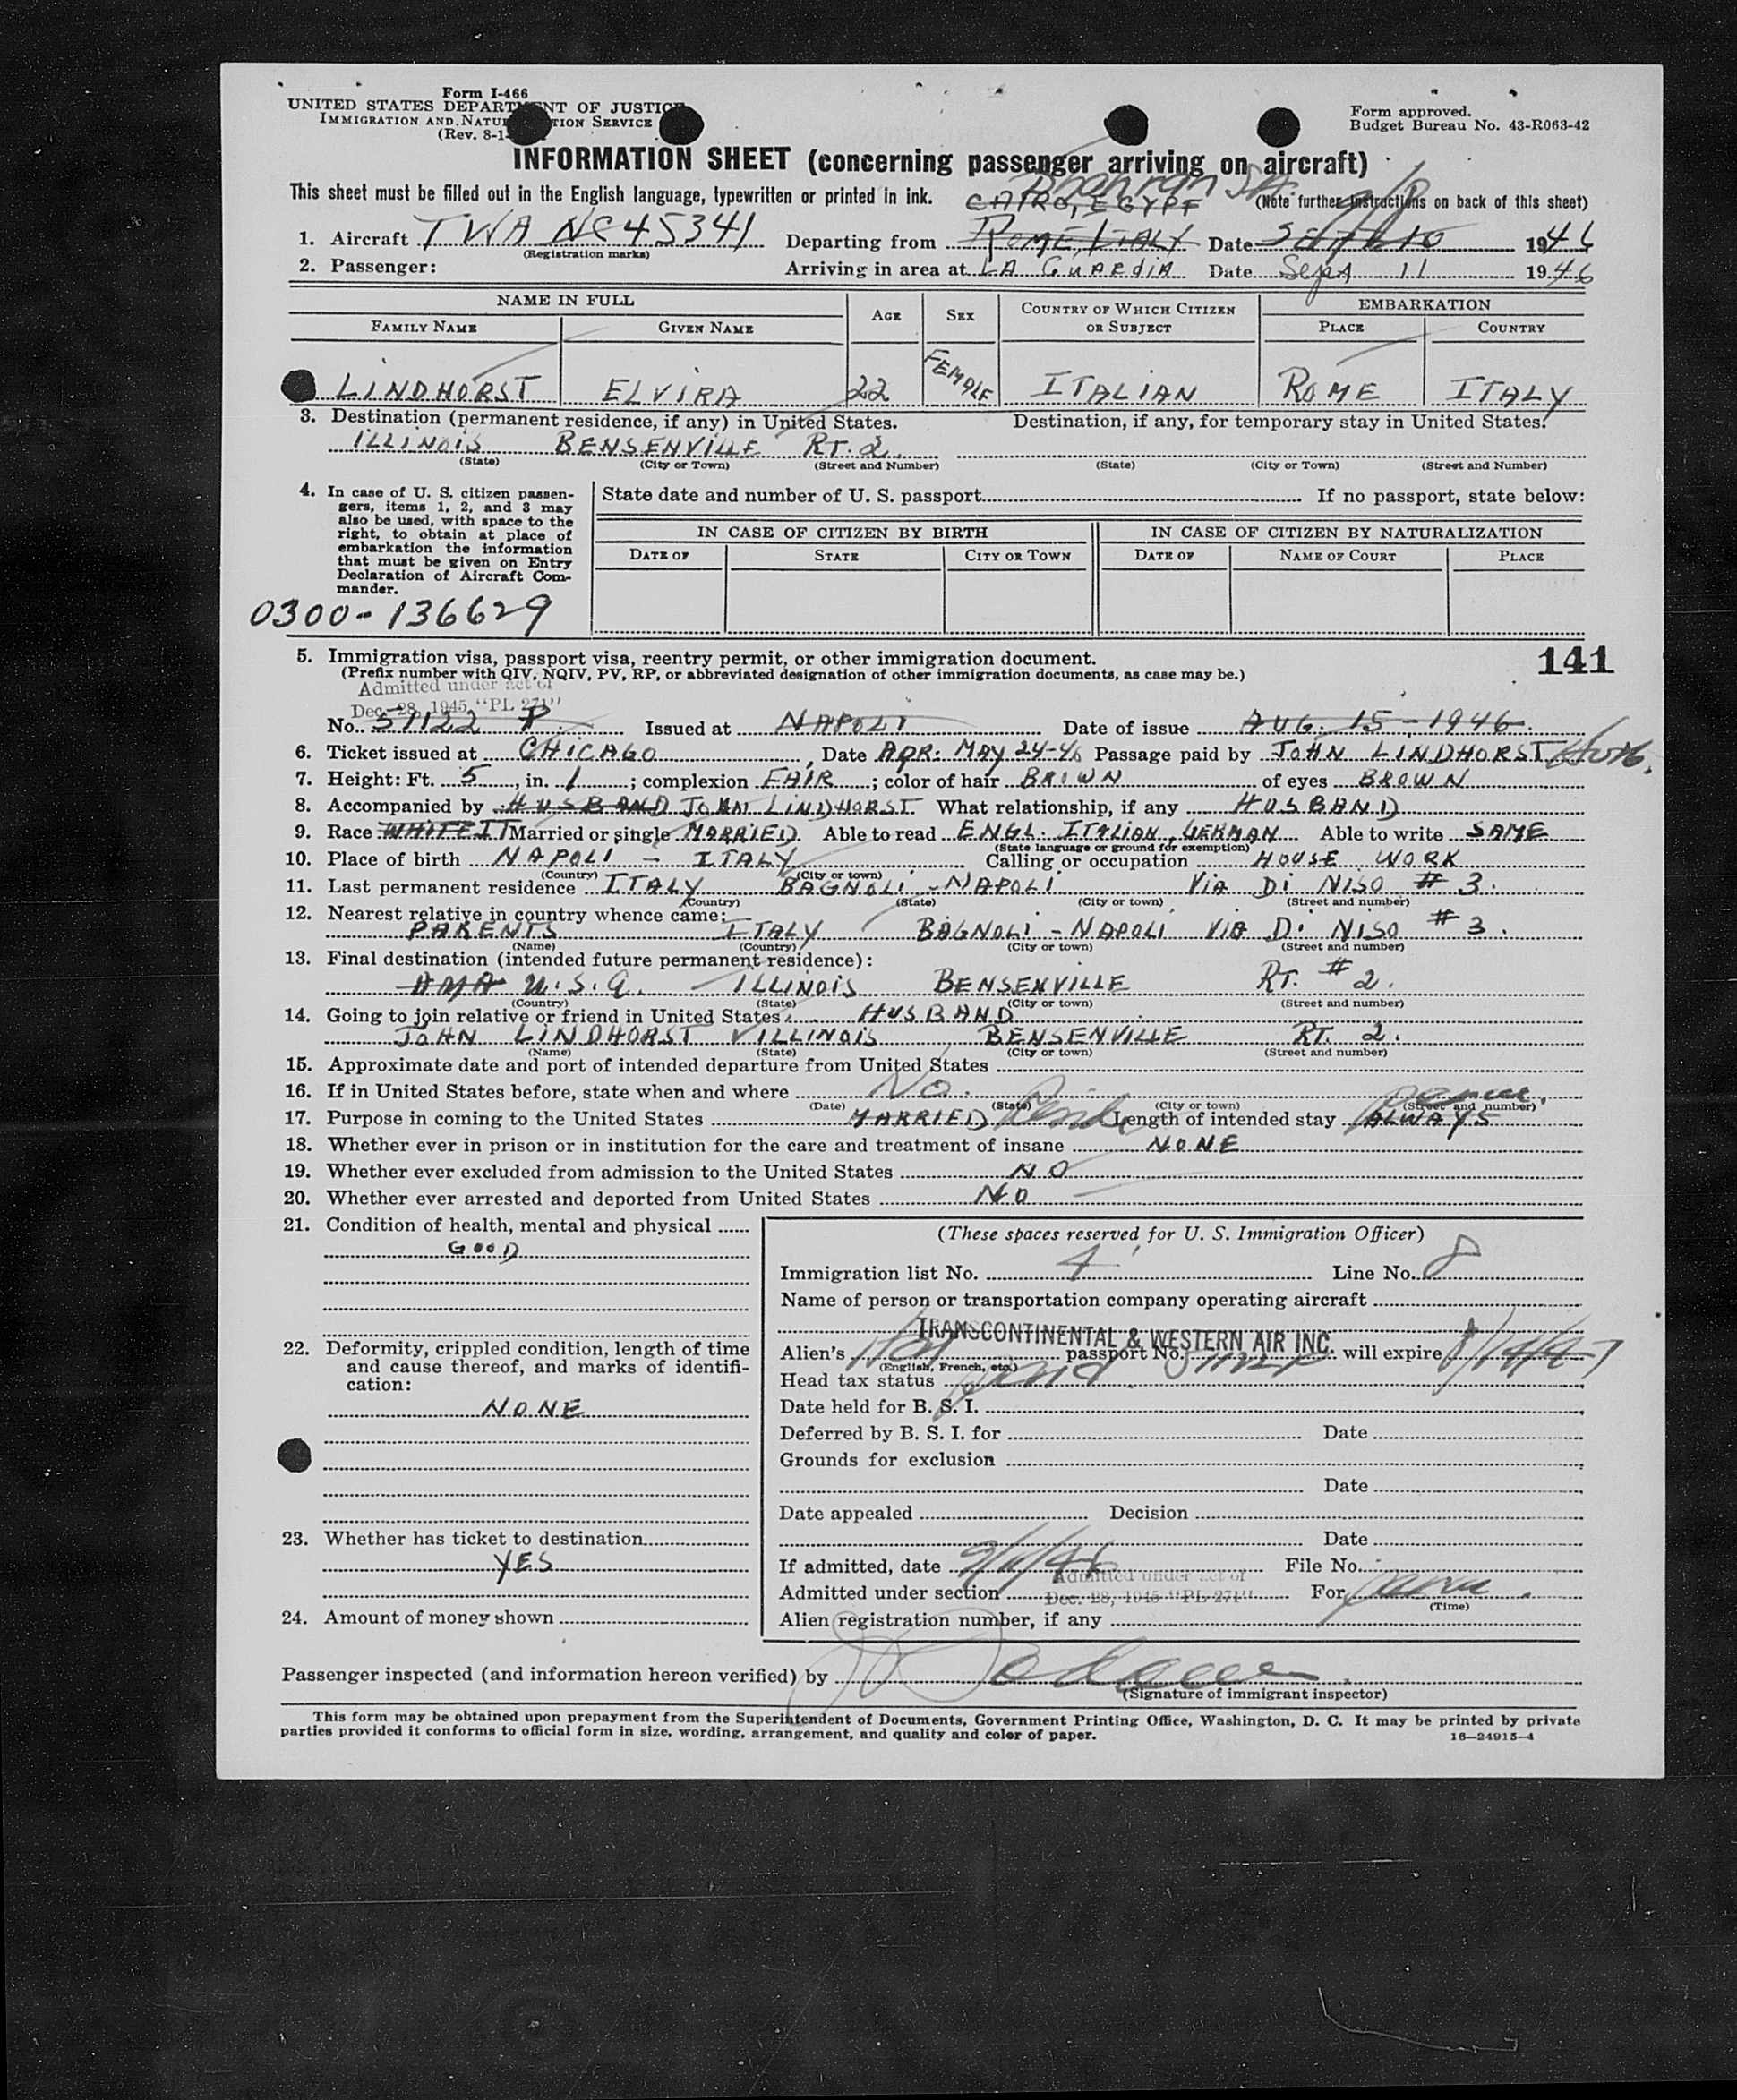 Form I-466
UNITED STATES DEPARTMENT OF JUSTICE
IMMIGRATION AND NATURALIZATION SERVICE
(Rev. 8-1-
Form approved.
Budget Bureau No. 43-R063-42
INFORMATION SHEET (concerning passenger arriving on aircraft)
This sheet must be filled out in the English language, typewritten or printed in ink. (Note further instructions on back of this sheet)
Dhahran S.A.
CAIRO, EGYPT
1. Aircraft TWA NC 45341 Departing from ROME, ITALY Date 1946
(Registration marks)
2. Passenger: Arriving in area at LA GUARDIA Date Sept 11 1946
NAME IN FULL AGE SEX COUNTRY OF WHICH CITIZEN OR SUBJECT EMBARKATION
FAMILY NAME GIVEN NAME PLACE COUNTRY
LINDHORST ELVIRA 22 FEMALE ITALIAN ROME ITALY
3. Destination (permanent residence, if any) in United States. Destination, if any, for temporary stay in United States.
ILLINOIS BENSENVILLE RT. 2.
(State) (City or Town) (Street and Number) (State) (City or Town) (Street and Number)
4. In case of U. S. citizen passen-
gers, items 1, 2, and 3 may
also be used, with space to the
right, to obtain at place of
embarkation the information
that must be given on Entry
Declaration of Aircraft Com-
mander.
State date and number of U. S. passport If no passport, state below:
IN CASE OF CITIZEN BY BIRTH IN CASE OF CITIZEN BY NATURALIZATION
DATE OF STATE CITY OR TOWN DATE OF NAME OF COURT PLACE
0300-136629
5. Immigration visa, passport visa, reentry permit, or other immigration document.
141
(Prefix number with QIV, NQIV, PV, RP, or abbreviated designation of other immigration documents, as case may be.)
Admitted under act of
Dec. 28, 1945, "PL 271"
No. 51122 P. Issued at NAPOLI Date of issue AUG. 15 - 1946
6. Ticket issued at CHICAGO, Date APR. MAY 24-46 Passage paid by JOHN LINDHORST
7. Height: Ft. 5, in. 1; complexion FAIR; color of hair BROWN of eyes BROWN
8. Accompanied by HUSBAND JOHN LINDHORST What relationship, if any HUSBAND
9. Race WHITE IT Married or single MARRIED. Able to read ENGL. ITALIAN, GERMAN Able to write SAME
(State language or ground for exemption)
10. Place of birth NAPOLI - ITALY Calling or occupation HOUSE WORK
(Country) (City or town)
11. Last permanent residence ITALY BAGNOLI - NAPOLI VIA DI NISO # 3.
(Country) (State) (City or town) (Street and number)
12. Nearest relative in country whence came:
PARENTS ITALY BAGNOLI - NAPOLI VIA DI NISO # 3.
(Name) (Country) (City or town) (Street and number)
13. Final destination (intended future permanent residence):
U.S.A. ILLINOIS BENSENVILLE RT. # 2.
(Country) (State) (City or town) (Street and number)
14. Going to join relative or friend in United States. HUSBAND
JOHN LINDHORST ILLINOIS BENSENVILLE RT. 2.
(Name) (State) (City or town) (Street and number)
15. Approximate date and port of intended departure from United States
16. If in United States before, state when and where NO.
(Date) (State) (City or town) (Street and number)
17. Purpose in coming to the United States MARRIED Length of intended stay ALWAYS perm.
18. Whether ever in prison or in institution for the care and treatment of insane NONE
19. Whether ever excluded from admission to the United States NO
20. Whether ever arrested and deported from United States NO
21. Condition of health, mental and physical
GOOD
22. Deformity, crippled condition, length of time
and cause thereof, and marks of identifi-
cation:
NONE
23. Whether has ticket to destination
YES
24. Amount of money shown
(These spaces reserved for U. S. Immigration Officer)
Immigration list No. 4 Line No. 8
Name of person or transportation company operating aircraft
TRANSCONTINENTAL & WESTERN AIR INC.
Alien's Ital passport No. 51122 P will expire 8/14/47
(English, French, etc.)
Head tax status paid
Date held for B. S. I.
Deferred by B. S. I. for Date
Grounds for exclusion
Date
Date appealed Decision
Date
If admitted, date 9/11/46 File No.
Admitted under act of
Admitted under section Dec. 28, 1945 "PL 271" For perm.
(Time)
Alien registration number, if any
Passenger inspected (and information hereon verified) by
(Signature of immigrant inspector)
This form may be obtained upon prepayment from the Superintendent of Documents, Government Printing Office, Washington, D. C. It may be printed by private
parties provided it conforms to official form in size, wording, arrangement, and quality and color of paper.
16—24915-4